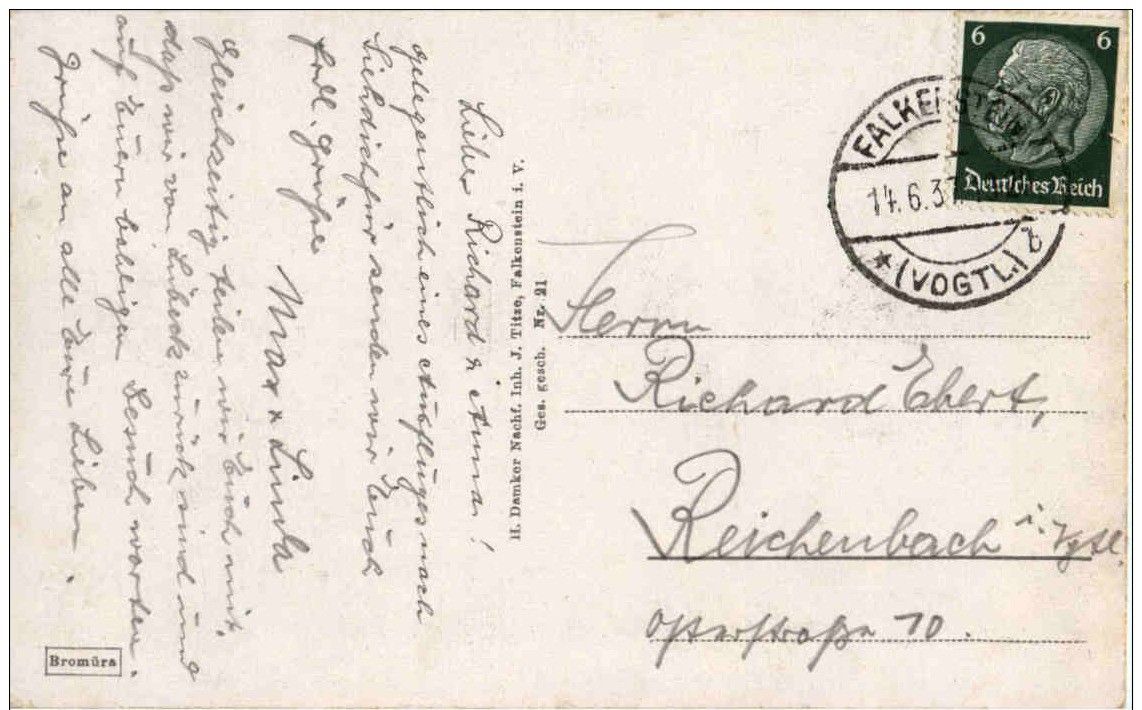 Lieber Richard & Anna!
gelegentlich eines Ausfluges nach
Siehdichfür senden wir Euch
hrdl. Grüße
Max & Linda
Gleichzeitig teilen wir Euch mit,
daß wir von Lübeck zurück sind und
auf Euern baldigen Besuch warten.
Grüße an alle Eure Lieben.
Bromüra
H. Damker Nachf. Inh. J. Titze, Falkenstein i. V.
Ges. gesch. Nr. 21
6 6
Deutsches Reich
FALKENSTEIN
14.6.37
* (VOGTL.) b
Herrn
Richard Ebert,
Reichenbach i. Vgtl.
10.